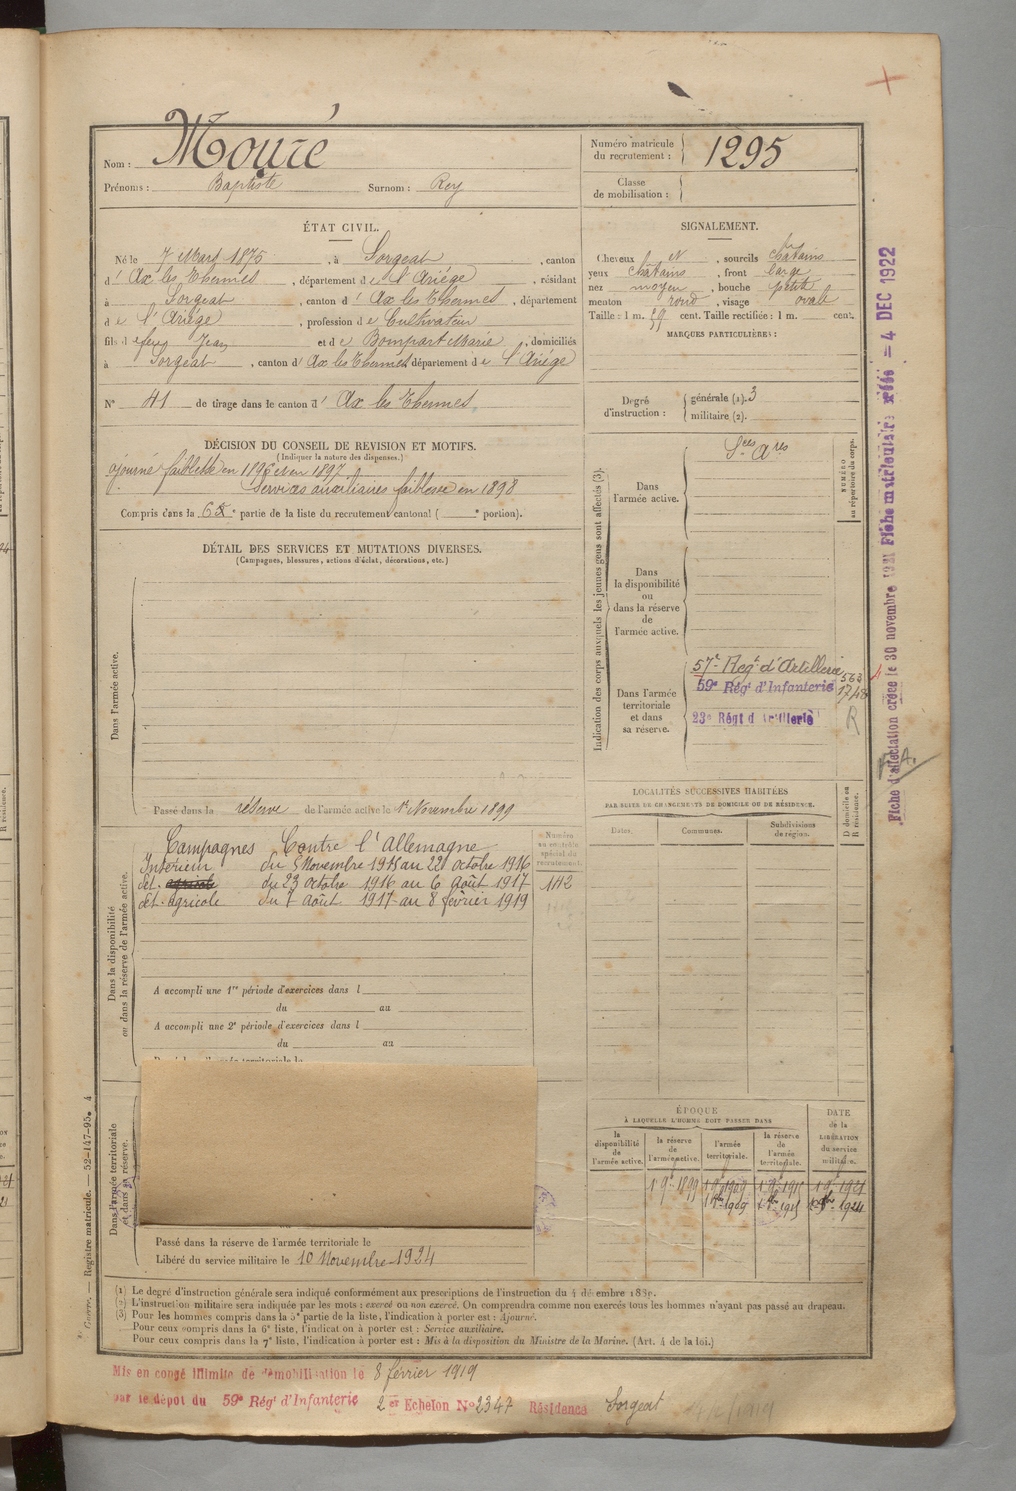 Nom : Mouré
Prénoms : Baptiste Surnom : Rey
Numéro matricule du recrutement : 1295
Classe de mobilisation :
ÉTAT CIVIL.
Né le 7 Mars 1875, à Sorgeat, canton
d' Ax les Thermes, département de l'Ariége, résidant
à Sorgeat, canton d' Ax les Thermes, département
de l'Ariége, profession de Cultivateur
fils d efeu Jean et de Bompart Marie, domiciliés
à Sorgeat, canton d' Ax les Thermes, département de l'Ariége
N° 41 de tirage dans le canton d' Ax les Thermes.
SIGNALEMENT.
Cheveux N, sourcils châtains
yeux châtains, front large
nez moyen, bouche petite
menton rond, visage ovale
Taille : 1 m. 59 cent. Taille rectifiée : 1 m. cent.
MARQUES PARTICULIÈRES :
Degré d'instruction : générale (1). 3
militaire (2).
DÉCISION DU CONSEIL DE REVISION ET MOTIFS.
(Indiquer la nature des dispenses.)
ajourné faiblesse en 1896 et en 1897
Services auxiliaires faiblesse en 1898
Compris dans la 6e partie de la liste du recrutement cantonal ( e portion).
DÉTAIL DES SERVICES ET MUTATIONS DIVERSES.
(Campagnes, blessures, actions d'éclat, décorations, etc.)
Dans l'armée active.
Passé dans la réserve de l'armée active le 1er Novembre 1899
Indication des corps auxquels les jeunes gens sont affectés (3).
NUMÉRO au répertoire du corps.
Dans l'armée active.
Sces Ares
Dans la disponibilité ou dans la réserve de l'armée active.
Dans l'armée territoriale et dans sa réserve.
57e Régt d'Artillerie 562
59e Régt d'Infanterie 1748
23e Régt d'Artillerie R
LOCALITÉS SUCCESSIVES HABITÉES
PAR SUITE DE CHANGEMENTS DE DOMICILE OU DE RÉSIDENCE.
Dates. Communes. Subdivisions de région. D domicile ou R résidence.
Dans la disponibilité ou dans la réserve de l'armée active.
Numéro au contrôle spécial du recrutement.
Campagnes Contre l'Allemagne
Intérieur du 5 Novembre 1915 au 22 octobre 1916
dét. agricole du 23 octobre 1916 au 6 Août 1917 142
dét. agricole du 7 Août 1917 au 8 février 1919
A accompli une 1re période d'exercices dans l
du au
A accompli une 2e période d'exercices dans l
du au
Dans l'armée territoriale et dans sa réserve.
Passé dans la réserve de l'armée territoriale le
Libéré du service militaire le 10 Novembre 1924
ÉPOQUE
À LAQUELLE L'HOMME DOIT PASSER DANS
DATE de la LIBÉRATION du service militaire.
la disponibilité de l'armée active. la réserve de l'armée active. l'armée territoriale. la réserve de l'armée territoriale.
1 9bre 1899 1 9 1909 1 9 1915 1 9 1921
1 9bre 1909 1 9bre 1915 1 9bre 1921
(1) Le degré d'instruction générale sera indiqué conformément aux prescriptions de l'instruction du 4 décembre 1889.
(2) L'instruction militaire sera indiquée par les mots : exercé ou non exercé. On comprendra comme non exercés tous les hommes n'ayant pas passé au drapeau.
(3) Pour les hommes compris dans la 5e partie de la liste, l'indication à porter est : Ajourné.
Pour ceux compris dans la 6e liste, l'indication à porter est : Service auxiliaire.
Pour ceux compris dans la 7e liste, l'indication à porter est : Mis à la disposition du Ministre de la Marine. (Art. 4 de la loi.)
Mis en congé illimité de démobilisation le 8 février 1919
par le dépôt du 59e Régt d'Infanterie 2er Echelon No 2347 Résidence Sorgeat
Guerre. — Registre matricule. — 52-147-95. 4
Fiche d'affectation créée le 30 novembre 1921 Fiche matriculaire créée — 4 DEC 1922